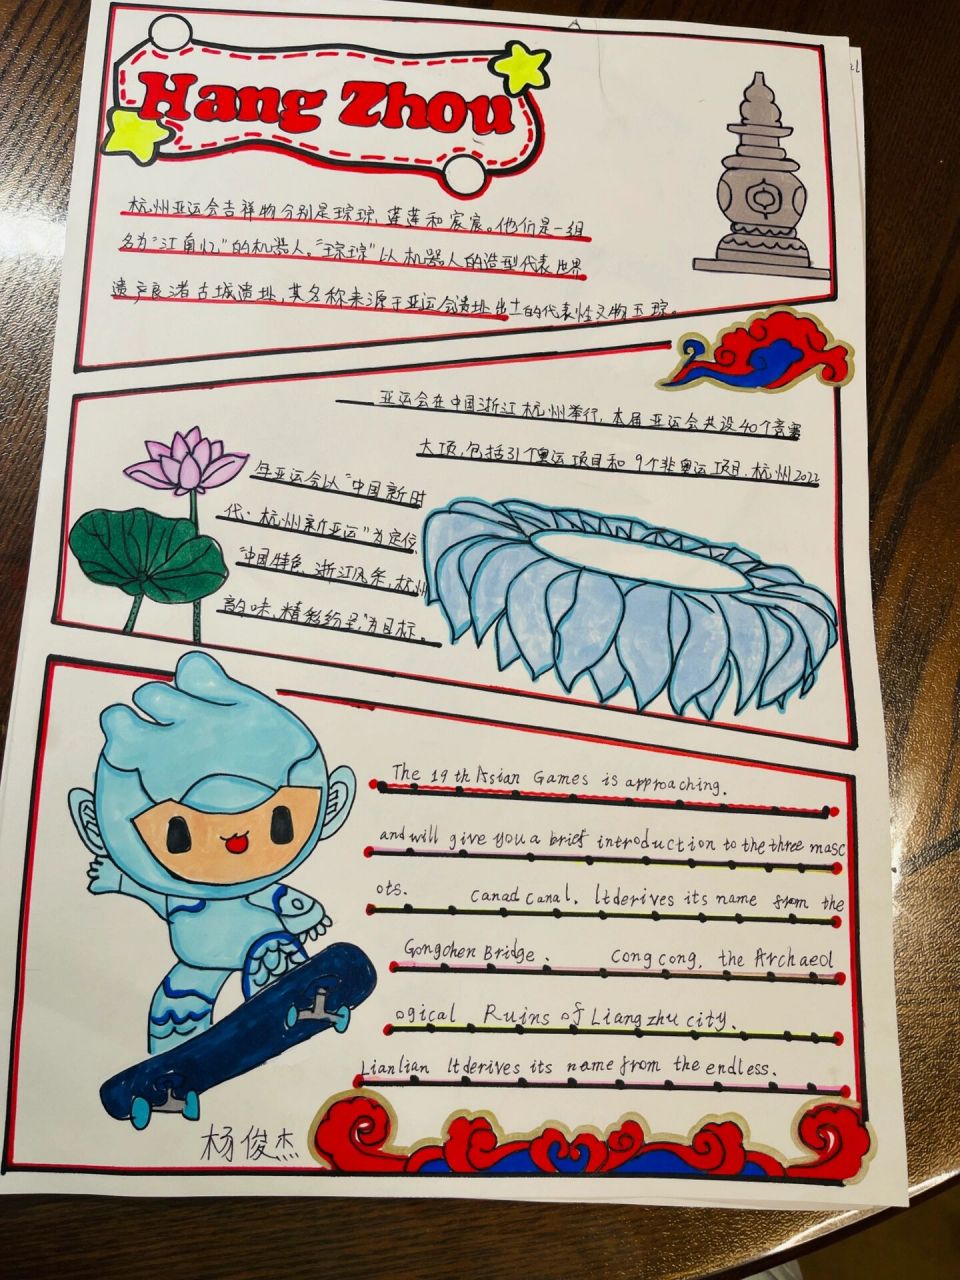 Hang Zhou
杭州亚运会吉祥物分别是琮琮、莲莲和宸宸。他们是一组
名为"江南忆"的机器人。"琮琮"以机器人的造型代表世界
遗产良渚古城遗址,其名称来源于亚运会遗址出土的代表性文物玉琮。
亚运会在中国浙江杭州举行,本届亚运会共设40个竞赛
大项,包括31个奥运项目和9个非奥运项目.杭州2022
年亚运会以"中国新时
代·杭州新亚运"为定位、
"中国特色、浙江风采、杭州
韵味、精彩纷呈"为目标。
The 19th Asian Games is approaching.
and will give you a brief introduction to the three masc
ots. canad canal. It derives its name from the
Gongchen Bridge. Congcong, the Archaeol
ogical Ruins of Liangzhu city.
Lianlian It derives its name from the endless.
杨俊杰